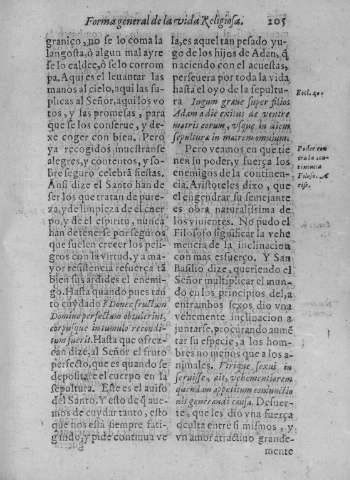 Forma general de la vida Religiosa. 205
graniço, no se lo coma la
langosta, ò algun mal ayre
se lo caldee, ò se lo corrom
pa. Aqui es el leuantar las
manos al cielo, aqui las su
plicas al Señor, aqui los vo
tos, y las promesas, para
que se los conserue, y de-
xe coger con bien. Pero
ya recogidos muestranse
alegres, y contentos, y so-
bre seguro celebra fiestas.
Ansi dize el Santo han de
ser los que tratan de pure-
za, y de limpieza de el cuer
po, y de el espiritu, nunca
han de tenerse por seguros
que suelen crecer los peli-
gros con la virtud, y a ma-
yor resistencia refuerça tã
bien sus ardides el enemi-
go. Hasta quando pues tan
to cuydado? Donec fructum
Domino perfectum obtulerint,
corpusque in tumulo recondi-
tum fuerit. Hasta que ofrez-
can dize, al Señor el fruto
perfecto, que es quando se
deposita el cuerpo en la
sepultura. Este es el auiso
del Santo. Y esto de q̃ aue-
mos de cuydar tanto, esto
que nos esta siempre fati-
gando, y pide continua ve
la, es aquel tan pesado yu-
go de los hijos de Adan, q̃
naciendo con el acuestas,
perseuera por toda la vida
hasta el oyo de la sepultu
ra Iugum graue super filios
Adam a die exitus de ventre
matris eorum, vsque in diem
sepulturæ in matrem omnium.
Pero veamos en que tie
nen su poder, y fuerça los
enemigos de la continen-
cia. Aristoteles dixo, que
el engendrar su semejante
es obra naturalissima de
los viuientes. No pudo el
Filosofo significar la vehe
mencia de la inclinacion
con mas esfuerço. Y San
Basilio dize, queriendo el
Señor multiplicar el mun-
do en los principios del, a
entrambos sexos dio vna
vehemente inclinacion a
juntarse, procurando aumẽ
tar su especie, a los hom-
bres no menos que a los a-
nimales.
quendam appetitum coniunctio
nis generandi causa. Desuer-
te, que les dio vna fuerça
oculta entre si mismos, y
vn amor atractiuo grande-
mente
Eccl. 40.